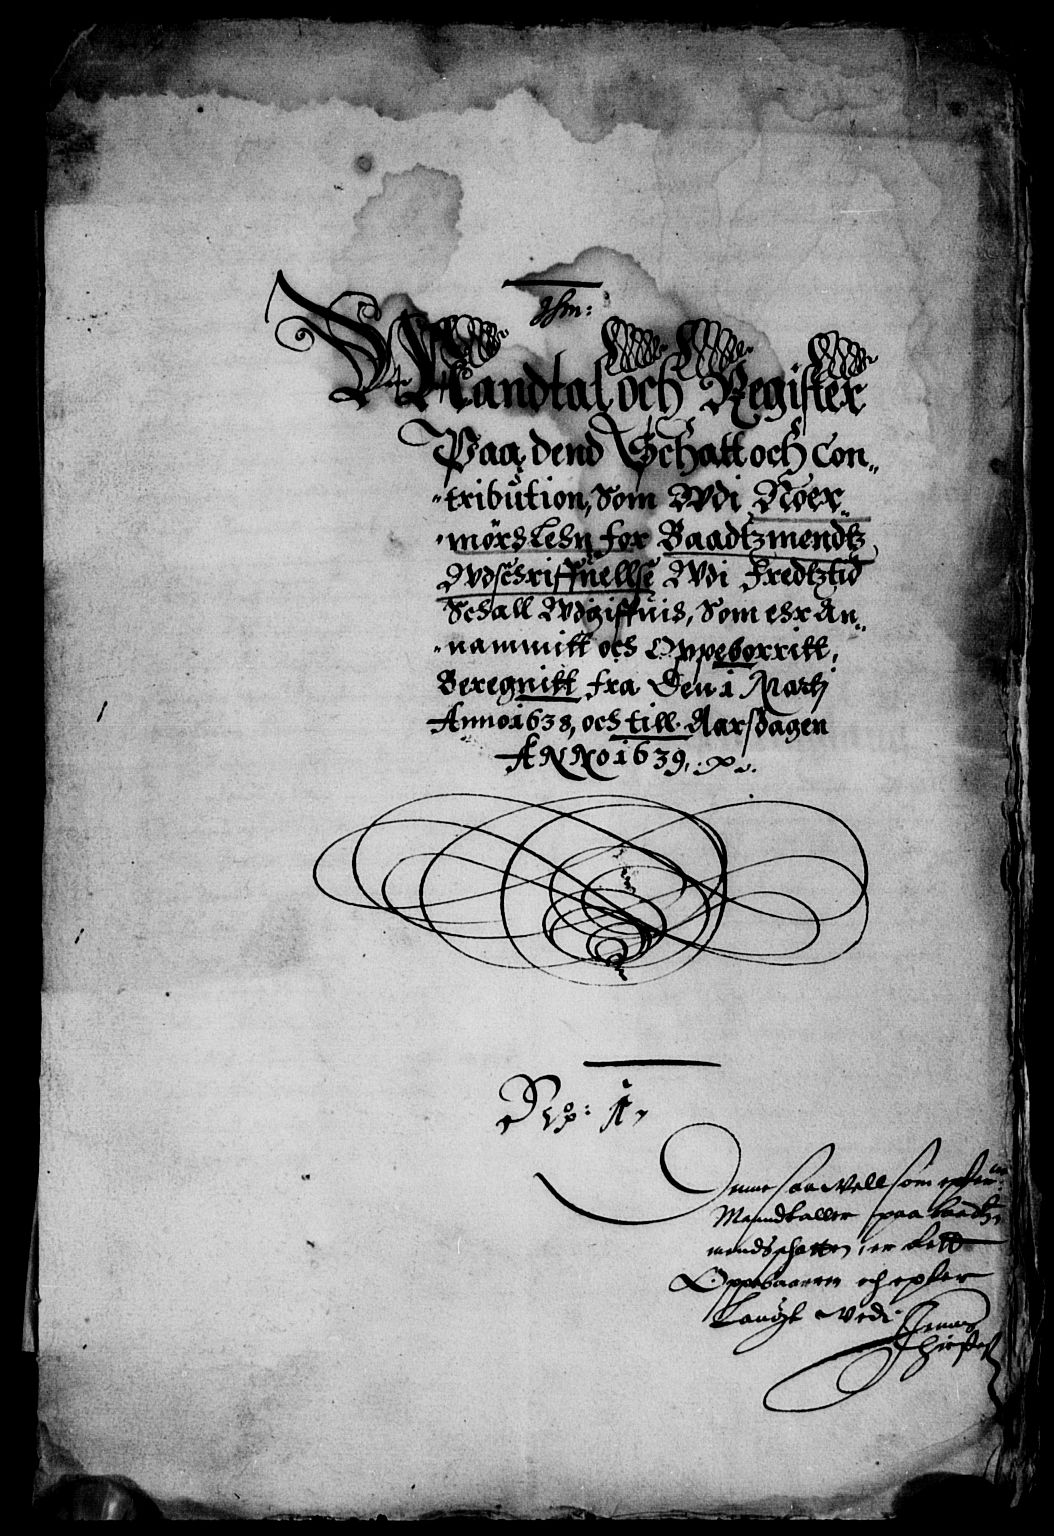 Mandtal och Register
Paa dend Schatt och Con„
„tribution, Som Wdi Noer„
„mörs Lehn for Baadtzmendtz
Wdschriffuellsse Wdi Fredtztid
Schall Wdgiffuis, Som ehr An„
„nammitt och Oppeborritt,
Beregnitt fra Den 1 Martij
Anno 1638, och till Aarsdagen
ANNO 1639,
N: 1,
Denne saa well som
Mandtaller paa baadtz
mendschatten, er Rett
Oppebaaren och epter